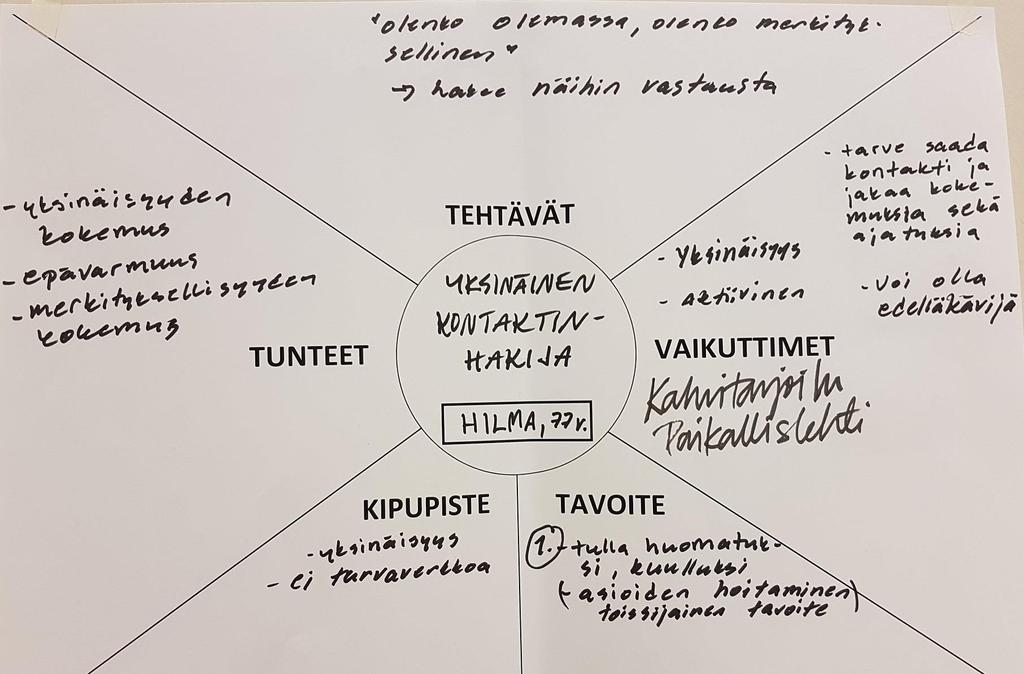 "olenko olemassa, olenko merkityk-
sellinen"
→ hakee näihin vastausta
TEHTÄVÄT
YKSINÄINEN
KONTAKTIN-
HAKIJA
HILMA, 77 v.
- yksinäisyyden
kokemus
- epävarmuus
- merkityksellisyyden
kokemus
TUNTEET
- yksinäisyys
- aktiivinen
- tarve saada
kontakti ja
jakaa koke-
muksia sekä
ajatuksia
- voi olla
edelläkävijä
VAIKUTTIMET
Kahvitarjoilu
Paikallislehti
KIPUPISTE
- yksinäisyys
- ei turvaverkkoa
TAVOITE
1. - tulla huomatuk-
si, kuulluksi
(- asioiden hoitaminen)
toissijainen tavoite